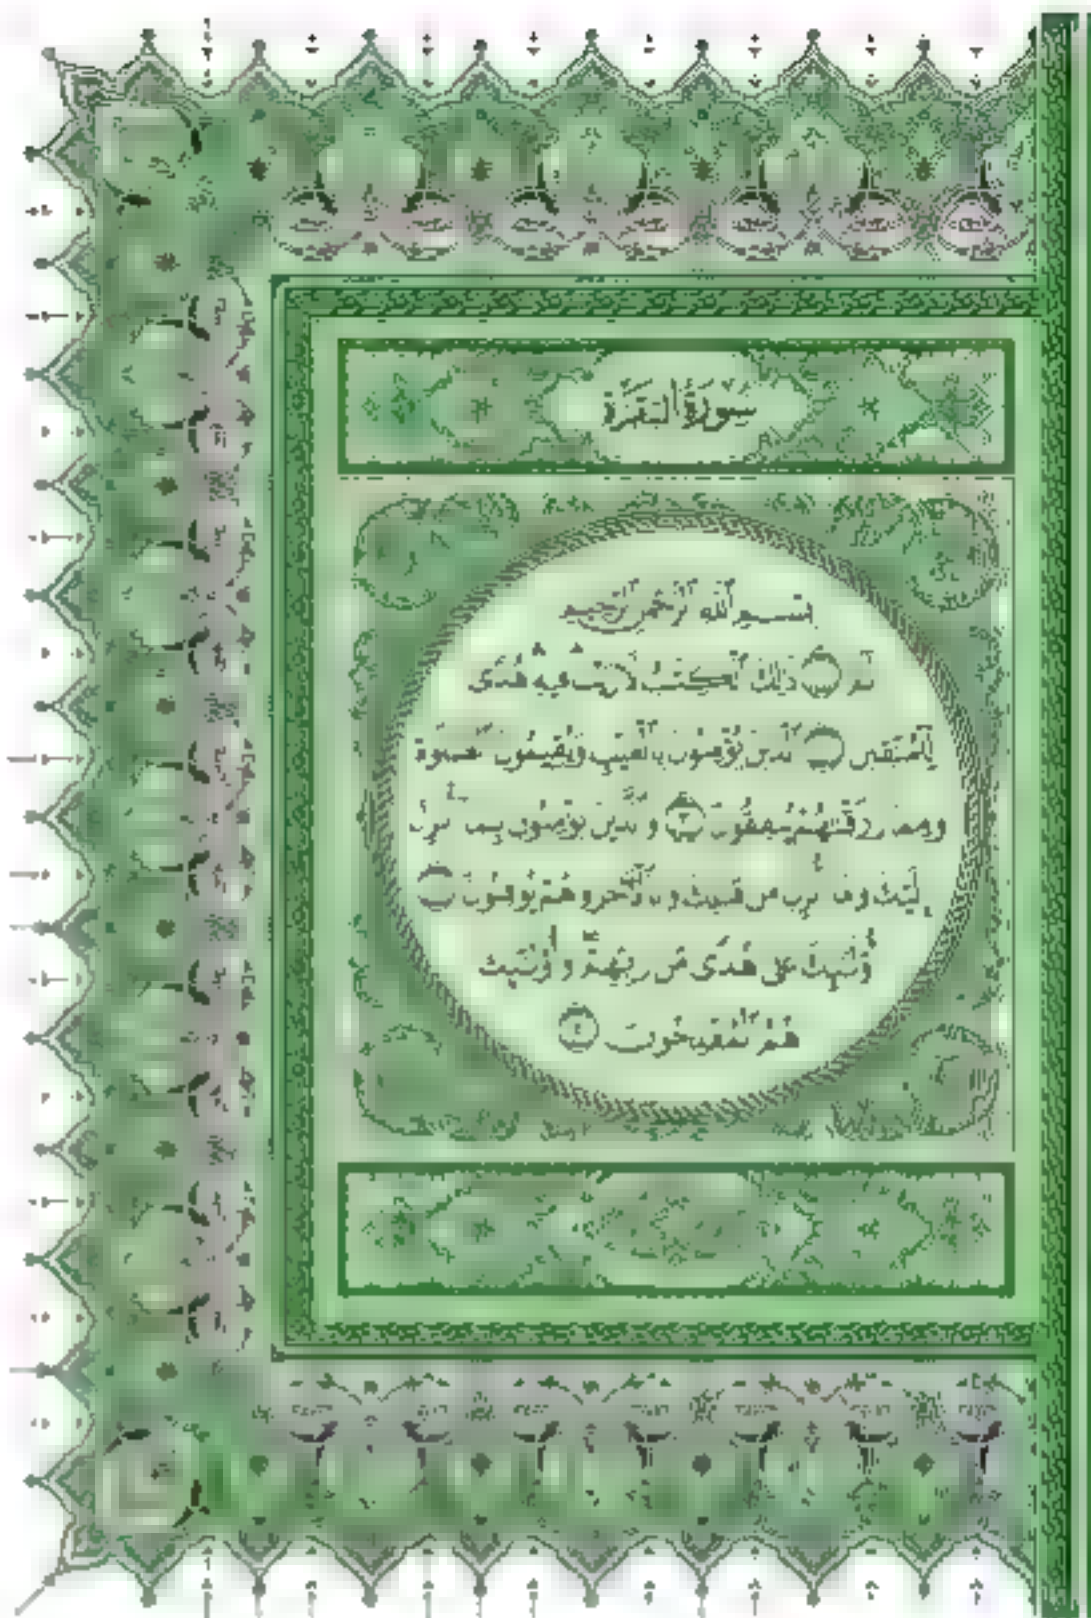 سُورَةُ البَقَرَة
بِسْمِ ٱللَّهِ ٱلرَّحْمَٰنِ ٱلرَّحِيمِ
الٓمٓ ۝١ ذَٰلِكَ ٱلْكِتَٰبُ لَا رَيْبَ ۛ فِيهِ ۛ هُدًى
لِّلْمُتَّقِينَ ۝٢ ٱلَّذِينَ يُؤْمِنُونَ بِٱلْغَيْبِ وَيُقِيمُونَ ٱلصَّلَوٰةَ
وَمِمَّا رَزَقْنَٰهُمْ يُنفِقُونَ ۝٣ وَٱلَّذِينَ يُؤْمِنُونَ بِمَآ أُنزِلَ
إِلَيْكَ وَمَآ أُنزِلَ مِن قَبْلِكَ وَبِٱلْأَخِرَةِ هُمْ يُوقِنُونَ ۝٤
أُو۟لَٰٓئِكَ عَلَىٰ هُدًى مِّن رَّبِّهِمْ ۖ وَأُو۟لَٰٓئِكَ
هُمُ ٱلْمُفْلِحُونَ ۝٥